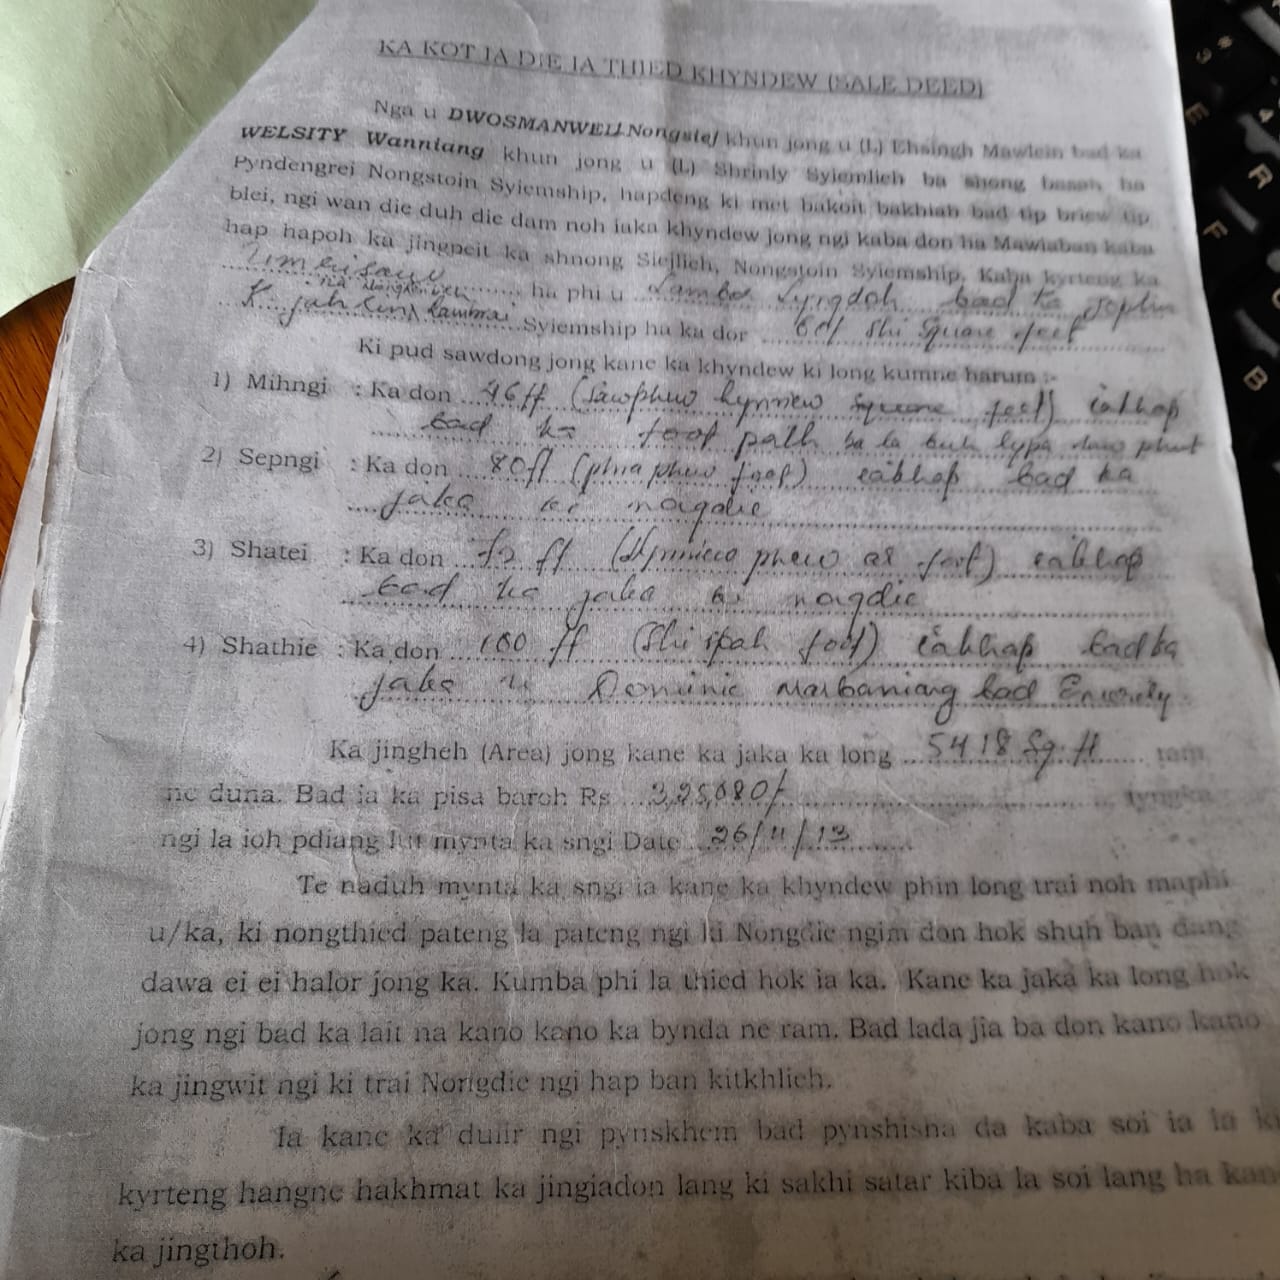 KA KOT IA DIE IA THIED KHYNDEW (SALE DEED)
Nga u DWOSMANWELL Nongsiej khun jong u (L) Ehsingh Mawlein bad ka
WELSITY Wanniang khun jong u (L) Shrinly Syiemlieh ba shong basah ha
Pyndengrei Nongstoin Syiemship, hapdeng ki met bakoit bakhiah bad tip briew tip
blei, ngi wan die duh die dam noh iaka khyndew jong ngi kaba don ha Mawiaban kaba
hap hapoh ka jingpeit ka shnong Siejlieh, Nongstoin Syiemship, Kaba kyrteng ka
ha phi u Lambor Lyngdoh bad ka
Syiemship ha ka dor 60/ shi Square feet
Ki pud sawdong jong kane ka khyndew ki long kumne harum :-
1) Mihngi : Ka don 46ff (Sawphew hynriew Square feet) iakhap
bad ka foot path ba la buh lypa
2) Sepngi : Ka don 80ft (phra phew foot) iakhap bad ka
jaka ki nongdie
3) Shatei : Ka don 72 ff (Hynniew phew ar foot) iakhap
bad ka jaka ki nongdie
4) Shathie : Ka don 100 ff (Shi spah foot) iakhap bad ka
jaka u Dominic Marbaniang bad
Ka jingheh (Area) jong kane ka jaka ka long 5418 Sq. ft tam
ne duna. Bad ia ka pisa baroh Rs 3,25,080/ tyngka
ngi la ioh pdiang lut mynta ka sngi Date 26/11/13
Te naduh mynta ka sngi ia kane ka khyndew phin long trai noh maphi
u/ka, ki nongthied pateng la pateng ngi ki Nongdie ngim don hok shuh ban dang
dawa ei ei halor jong ka. Kumba phi la thied hok ia ka. Kane ka jaka ka long hok
jong ngi bad ka lait na kano kano ka bynda ne ram. Bad lada jia ba don kano kano
ka jingwit ngi ki trai Nongdie ngi hap ban kitkhlieh.
Ia kane ka duiir ngi pynskhem bad pynshisha da kaba soi ia la ki
kyrteng hangne hakhmat ka jingiadon lang ki sakhi satar kiba la soi lang ha kane
ka jingthoh.